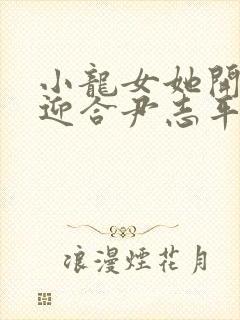 小龍女她開
迎合尹志平
浪漫煙花月